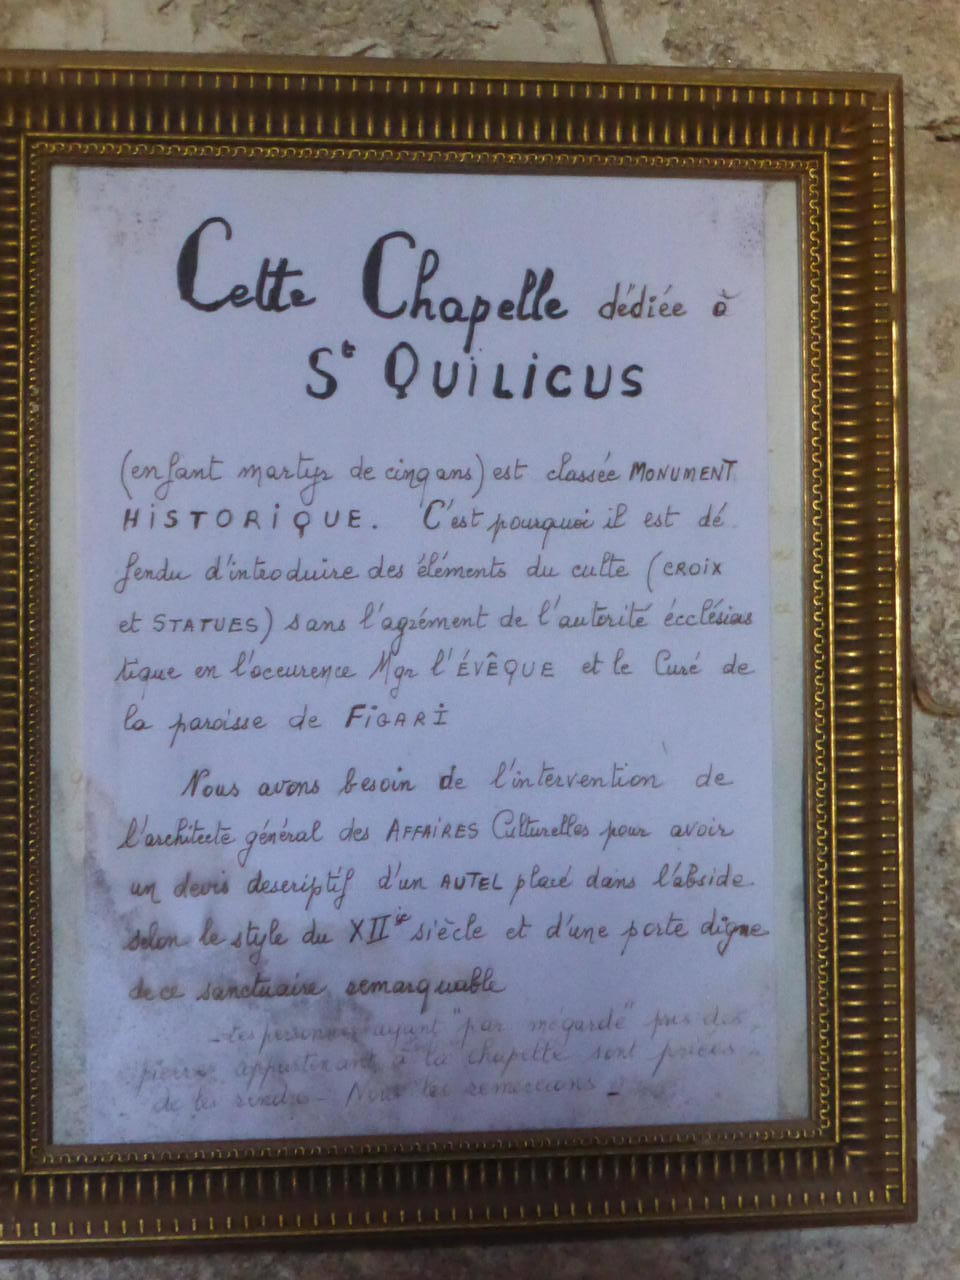 Cette Chapelle dédiée à
St QUiLiCUS
(enfant martyr de cinq ans) est classée MONUMENT
HiSTORiQUE. C'est pourquoi il est dé
fendu d'introduire des éléments du culte (CROIX
et STATUES) sans l'agrément de l'autorité écclésias
tique en l'occurence Mgr l'ÉVÊQUE et le Curé de
la paroisse de FiGARi
Nous avons besoin de l'intervention de
l'architecte général des AFFAiRES Culturelles pour avoir
un devis descriptif d'un AUTEL placé dans l'abside
selon le style du XIIie siècle et d'une porte digne
de ce sanctuaire remarquable
- Les personnes ayant "par mégarde" pris des
pierres appartenant à la chapelle sont priées
de les rendre - Nous les remercions -